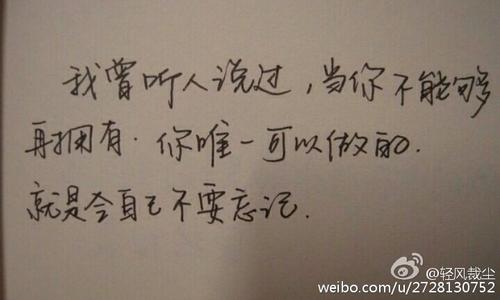 我曾听人说过，当你不能够
再拥有. 你唯一可以做的.
就是令自己不要忘记.
@轻风裁尘
weibo.com/u/2728130752